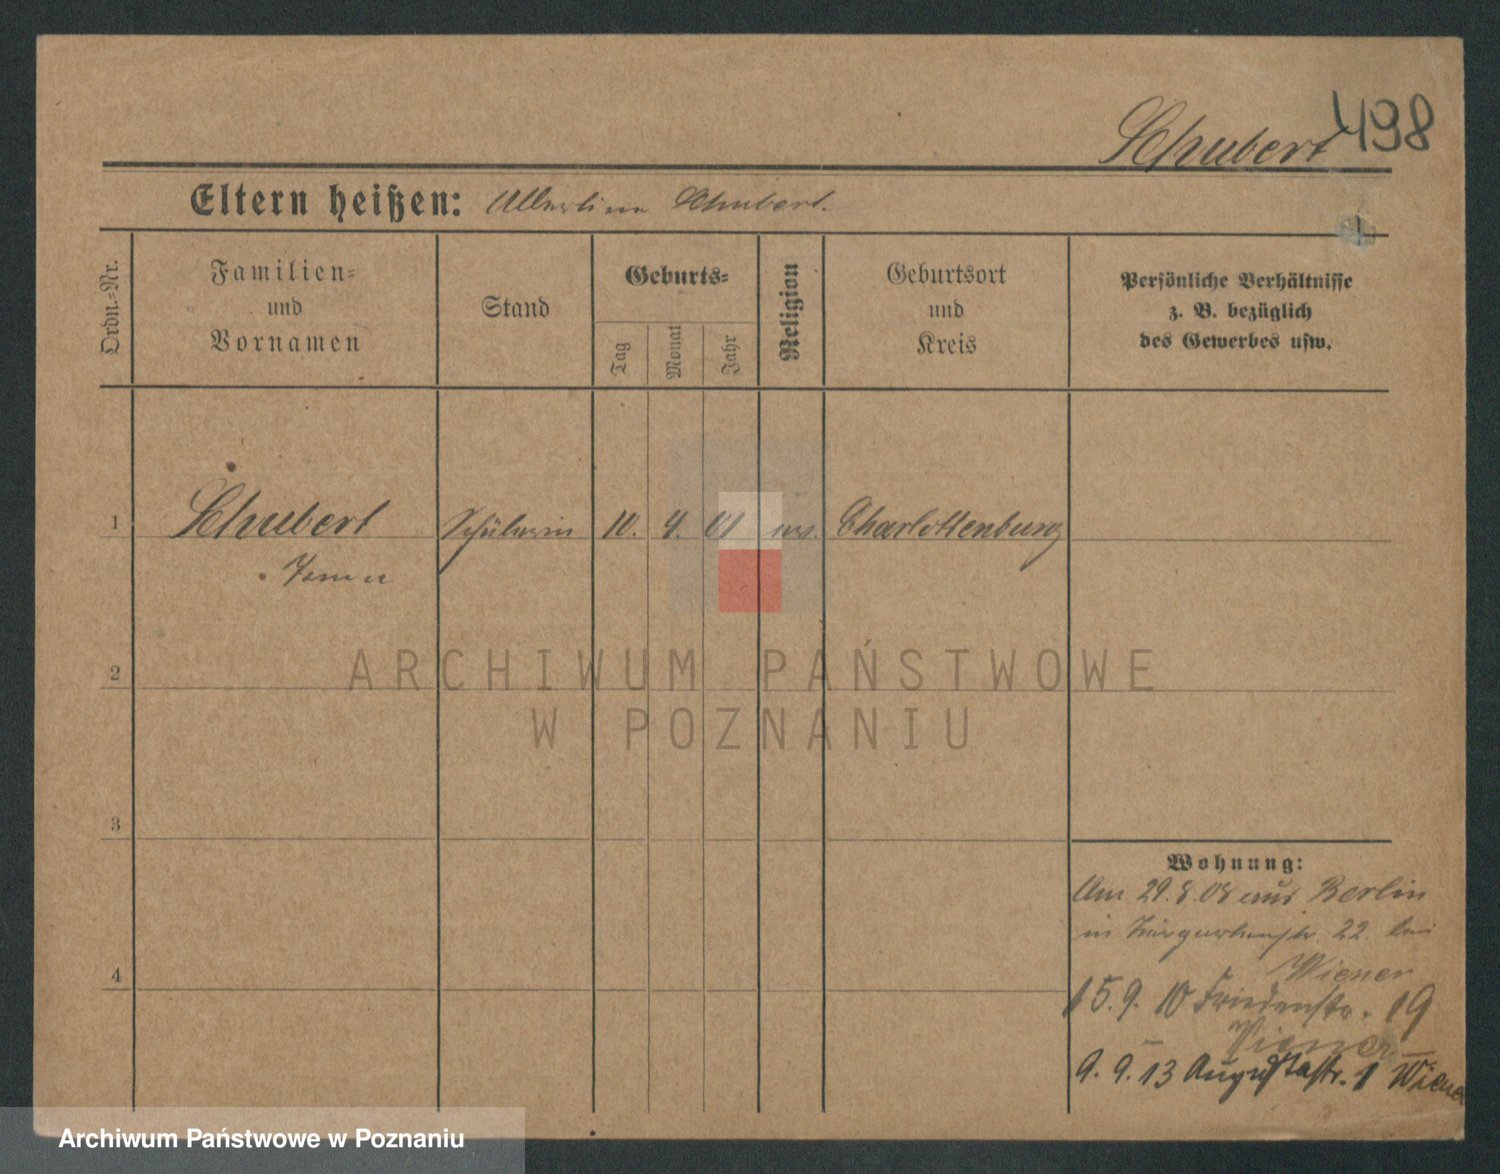 Schubert 498
Eltern heißen: Schubert.
Ordn.-Nr.
Familien-
und
Vornamen
Stand
Geburts-
Tag
Monat
Jahr
Religion
Geburtsort
und
Kreis
Persönliche Verhältnisse
z. B. bezüglich
des Gewerbes usw.
1 Schubert Schülerin 10. 4. 01 ev. Charlottenburg
2
3
4
Wohnung:
Am 29.8.08 aus Berlin
in 22. bei
Wiener
15.9.10 Friedenstr. 19
Wiener
9.9.13 Augustastr. 1 Wiener
ARCHIWUM PAŃSTWOWE
W POZNANIU
Archiwum Państwowe w Poznaniu